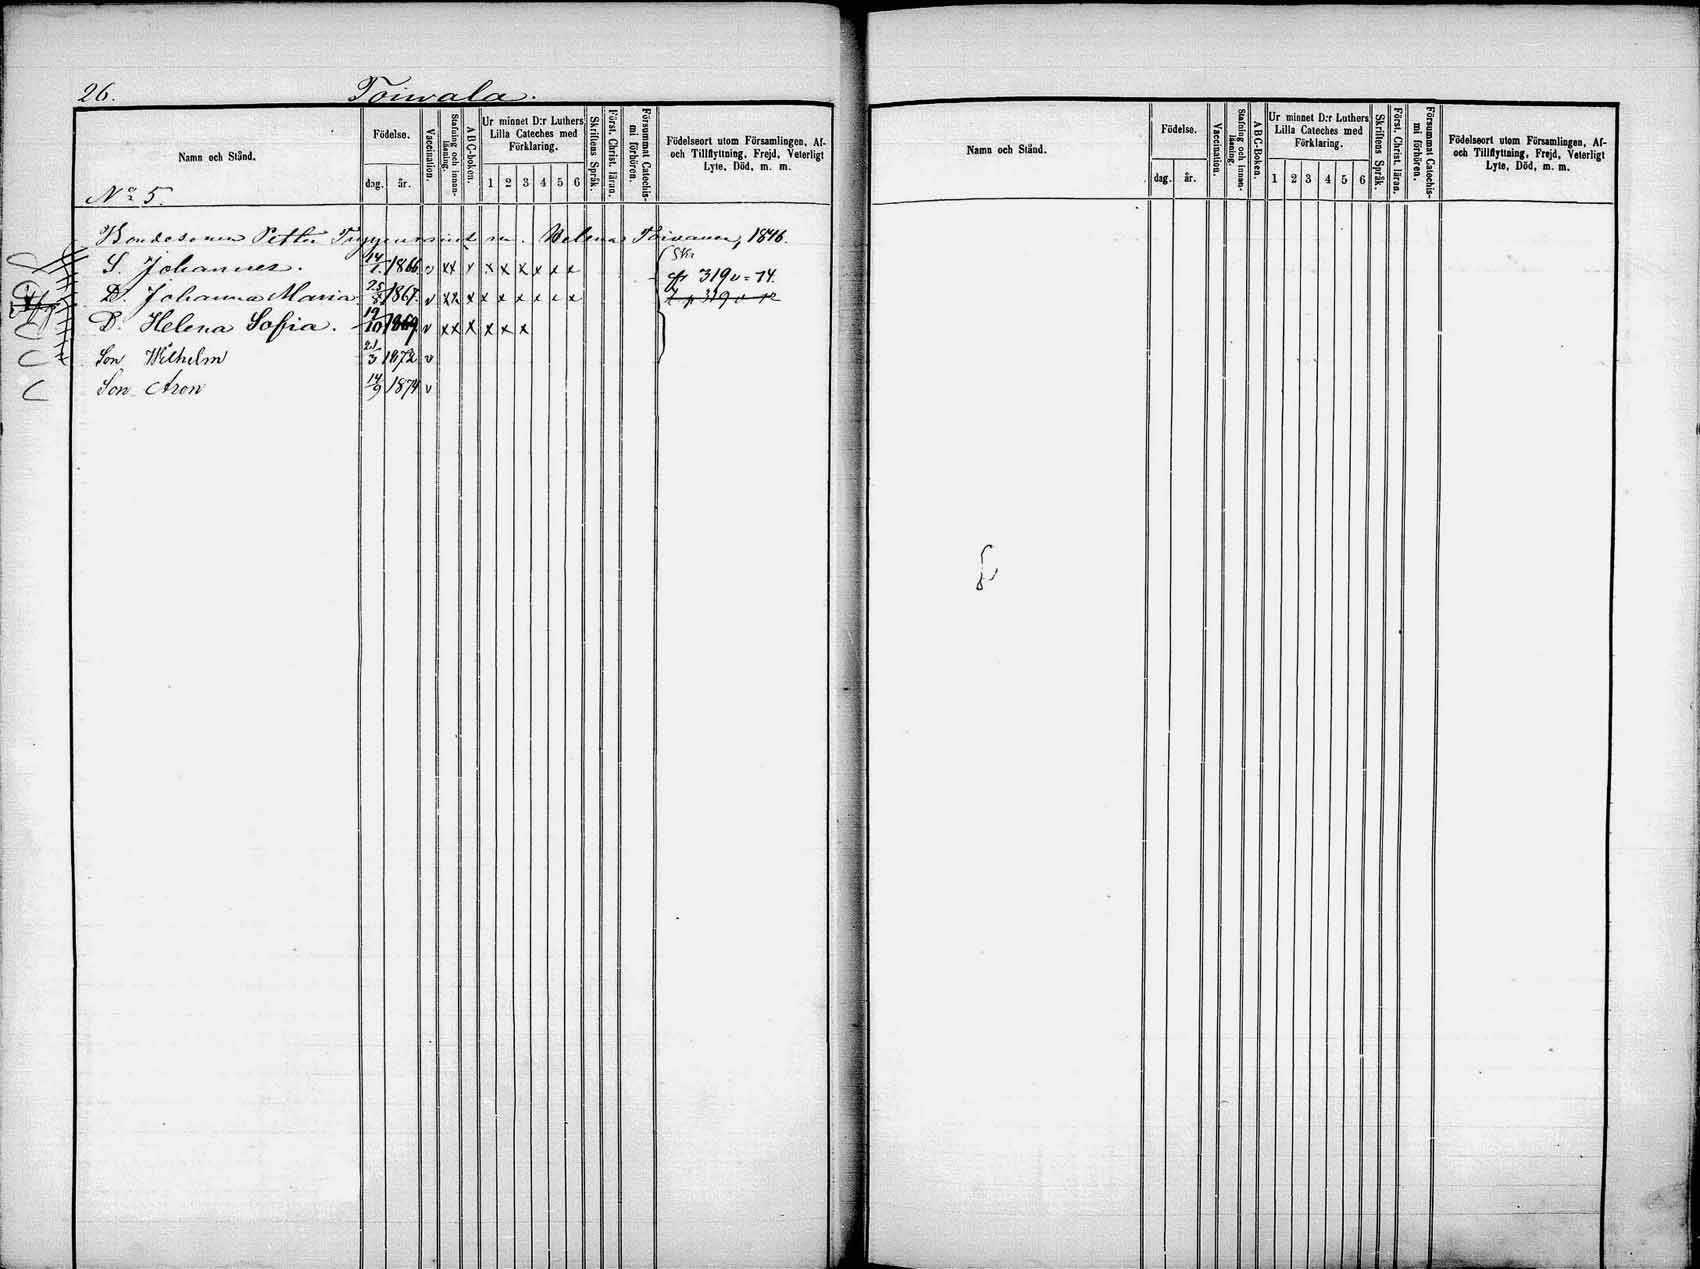 26. Toiwala.
Namn och Stånd.
Födelse.
dag. år.
Vaccination.
Stafning och innan-läsning.
A B C-Boken.
Ur minnet D:r Luthers Lilla Cateches med Förklaring.
1 2 3 4 5 6
Skriftens Språk.
Först. Christ. läran.
Försummat Catechis-mi förhören.
Födelseort utom Församlingen, Af- och Tillflyttning, Frejd, Veterligt Lyte, Död, m. m.
No 5.
Bondesonen Petter m. Helena Toivanen, 1846.
S. Johannes. 14/1 1866 v xx x x x x x x x
D. Johanna Maria 25/8 1867 v xx x x x x x x x 319 v = 14.
D. Helena Sofia. 19/10 1869 v xx x x x x
Son Wilhelm 21/3 1872 v
Son Aron 14/9 1874 v
Namn och Stånd.
Födelse.
dag. år.
Vaccination.
Stafning och innan-läsning.
A B C-Boken.
Ur minnet D:r Luthers Lilla Cateches med Förklaring.
1 2 3 4 5 6
Skriftens Språk.
Först. Christ. läran.
Försummat Catechis-mi förhören.
Födelseort utom Församlingen, Af- och Tillflyttning, Frejd, Veterligt Lyte, Död, m. m.